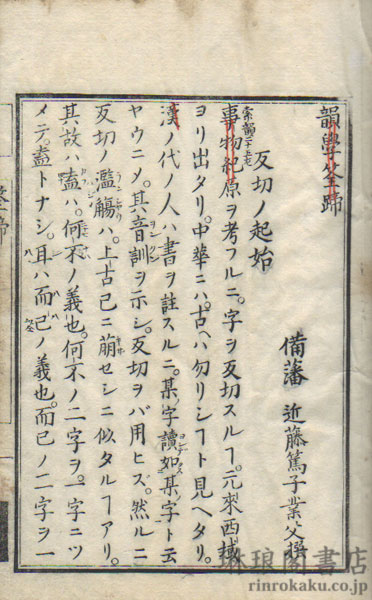 韻學筌蹄
備藩 近藤篤子業父撰
反切ノ起始
事物紀原ヲ考フルニ。字ヲ反切スルヿ。元來西域
ヨリ出タリ。中華ニハ。古ハ勿リシヿト見ヘタリ。
漢ノ代ノ人ハ書ヲ註スルニ。某ノ字讀如某字ト云
ヤウニメ。其音訓ヲ示シ。反切ヲバ用ヒズ。然ルニ
反切ノ濫觴ハ。上古已ニ萠セシニ似タルヿアリ。
其故ハ盍ハ。何不ノ義也。何不ノ二字ヲ。一字ニツ
メテ。盍トナシ。耳ハ而已ノ義也。而已ノ二字ヲ一
琳琅閣書店
rinrokaku.co.jp